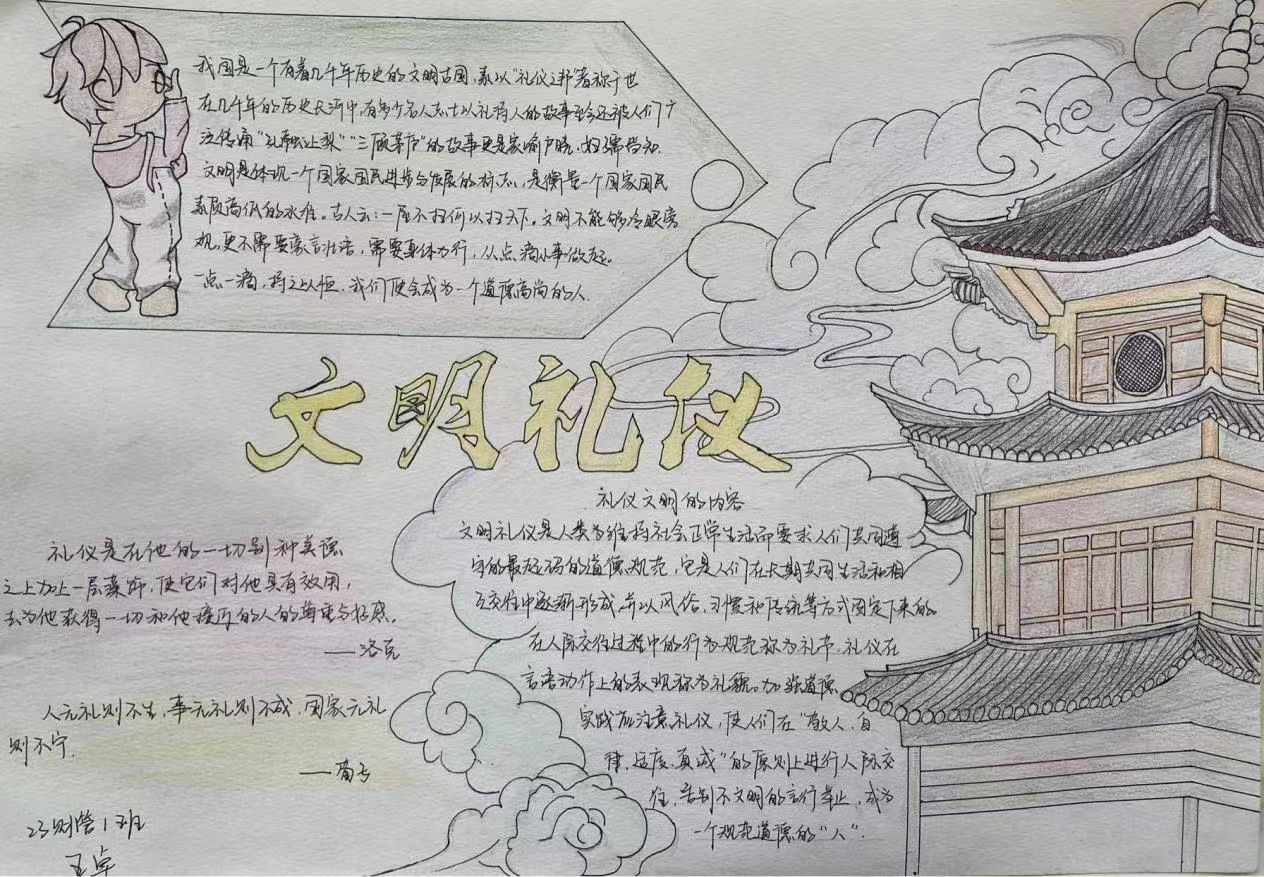 我国是一个有着几千年历史的文明古国，素以“礼仪之邦”著称于世
在几千年的历史长河中，有多少名人志士以礼待人的故事至今还被人们广
泛传诵“孔融让梨”“三顾茅庐”的故事更是家喻户晓，妇孺皆知.
文明是体现一个国家国民进步与发展的标志，是衡量一个国家国民
素质高低的水准。古人云：一屋不扫何以扫天下。文明不能够冷眼旁
观，更不需要豪言壮语，需要身体力行，从点滴小事做起。
一点一滴，持之以恒，我们便会成为一个道德高尚的人.
文明礼仪
礼仪文明的内容
文明礼仪是人类为维持社会正常生活而要求人们共同遵
守的最起码的道德规范，它是人们在长期共同生活和相
互交往中逐渐形成，并以风俗、习惯和传统等方式固定下来的
在人际交往过程中的行为规范称为礼节，礼仪在
言语动作上的表现称为礼貌。加强道德
实践应注意礼仪，使人们在“敬人、自
律，适度，真诚”的原则上进行人际交
往，告别不文明的言行举止，成为
一个规范道德的“人”.
礼仪是在他的一切别种美德
之上加上一层藻饰，使它们对他具有效用，
去为他获得一切和他接近的人的尊重与好感。
——洛克
人无礼则不生，事无礼则不成，国家无礼
则不宁.
——荀子
23财管1班
王卓